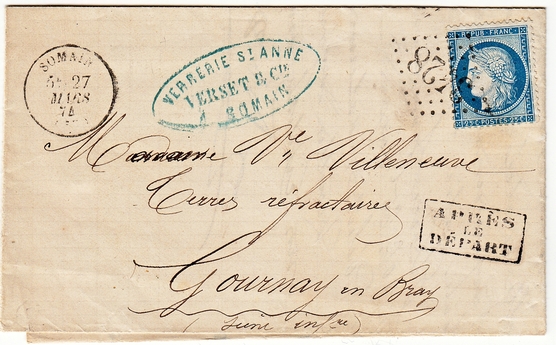 SOMAIN
5E 27
MARS
74
VERRERIE STE ANNE
VERSET & CIE
SOMAIN
REPUB·FRANC·
25 C·POSTES·25 C
Madame Ve Villeneuve
Terres réfractaires
APRÈS
LE
DÉPART
Gournay en Bray
(Seine infre)